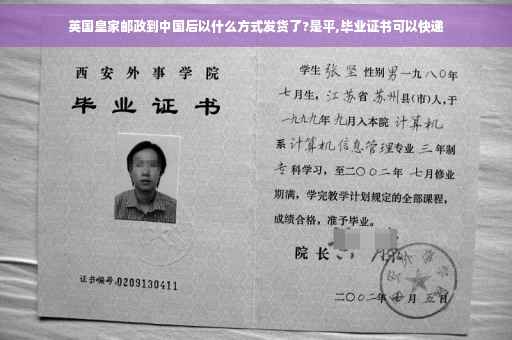 英国皇家邮政到中国后以什么方式发货了?是平,毕业证书可以快递
西安外事学院
毕业证书
证书编号:0209130411
学生张坚性别男一九八〇年
七月生,江苏省苏州县(市)人,于
一九九九年九月入本院计算机
系计算机信息管理专业三年制
专科学习,至二〇〇二年七月修业
期满,学完教学计划规定的全部课程,
成绩合格,准予毕业。
院长
二〇〇二年 月五日